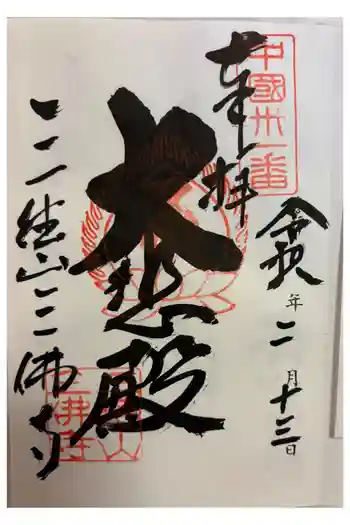 中國卅一番
奉拝
令和年二月十三日
大悲殿
三徳山三佛寺
三徳山
三佛寺